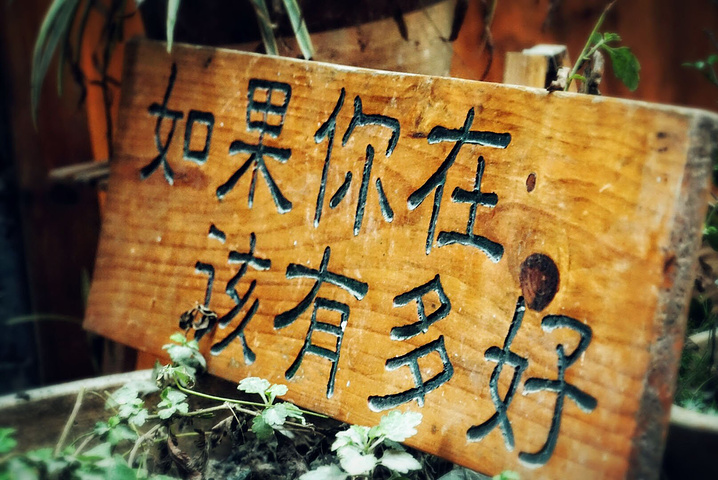 如果你在
该有多好